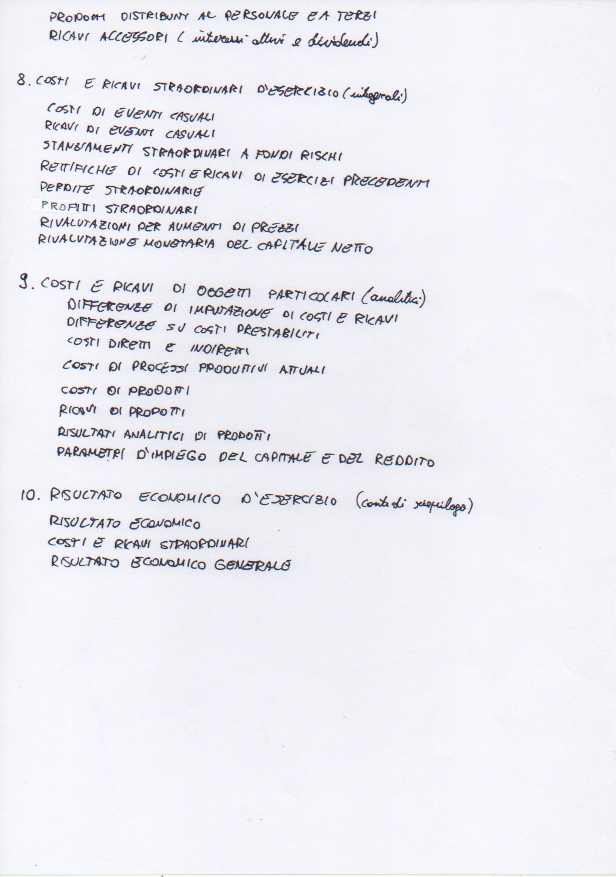 PRODOTTI DISTRIBUITI AL PERSONALE E A TERZI
RICAVI ACCESSORI (interessi attivi e dividendi)
8. COSTI E RICAVI STRAORDINARI D'ESERCIZIO (integrali)
COSTI DI EVENTI CASUALI
RICAVI DI EVENTI CASUALI
STANZIAMENTI STRAORDINARI A FONDI RISCHI
RETTIFICHE DI COSTI E RICAVI DI ESERCIZI PRECEDENTI
PERDITE STRAORDINARIE
PROFITTI STRAORDINARI
RIVALUTAZIONI PER AUMENTI DI PREZZI
RIVALUTAZIONE MONETARIA DEL CAPITALE NETTO
9. COSTI E RICAVI DI OGGETTI PARTICOLARI (analitici)
DIFFERENZE DI IMPUTAZIONE DI COSTI E RICAVI
DIFFERENZE SU COSTI PRESTABILITI
COSTI DIRETTI E INDIRETTI
COSTI DI PROCESSI PRODUTTIVI ATTUALI
COSTI DI PRODOTTI
RICAVI DI PRODOTTI
RISULTATI ANALITICI DI PRODOTTI
PARAMETRI D'IMPIEGO DEL CAPITALE E DEL REDDITO
10. RISULTATO ECONOMICO D'ESERCIZIO (conto di riepilogo)
RISULTATO ECONOMICO
COSTI E RICAVI STRAORDINARI
RISULTATO ECONOMICO GENERALE